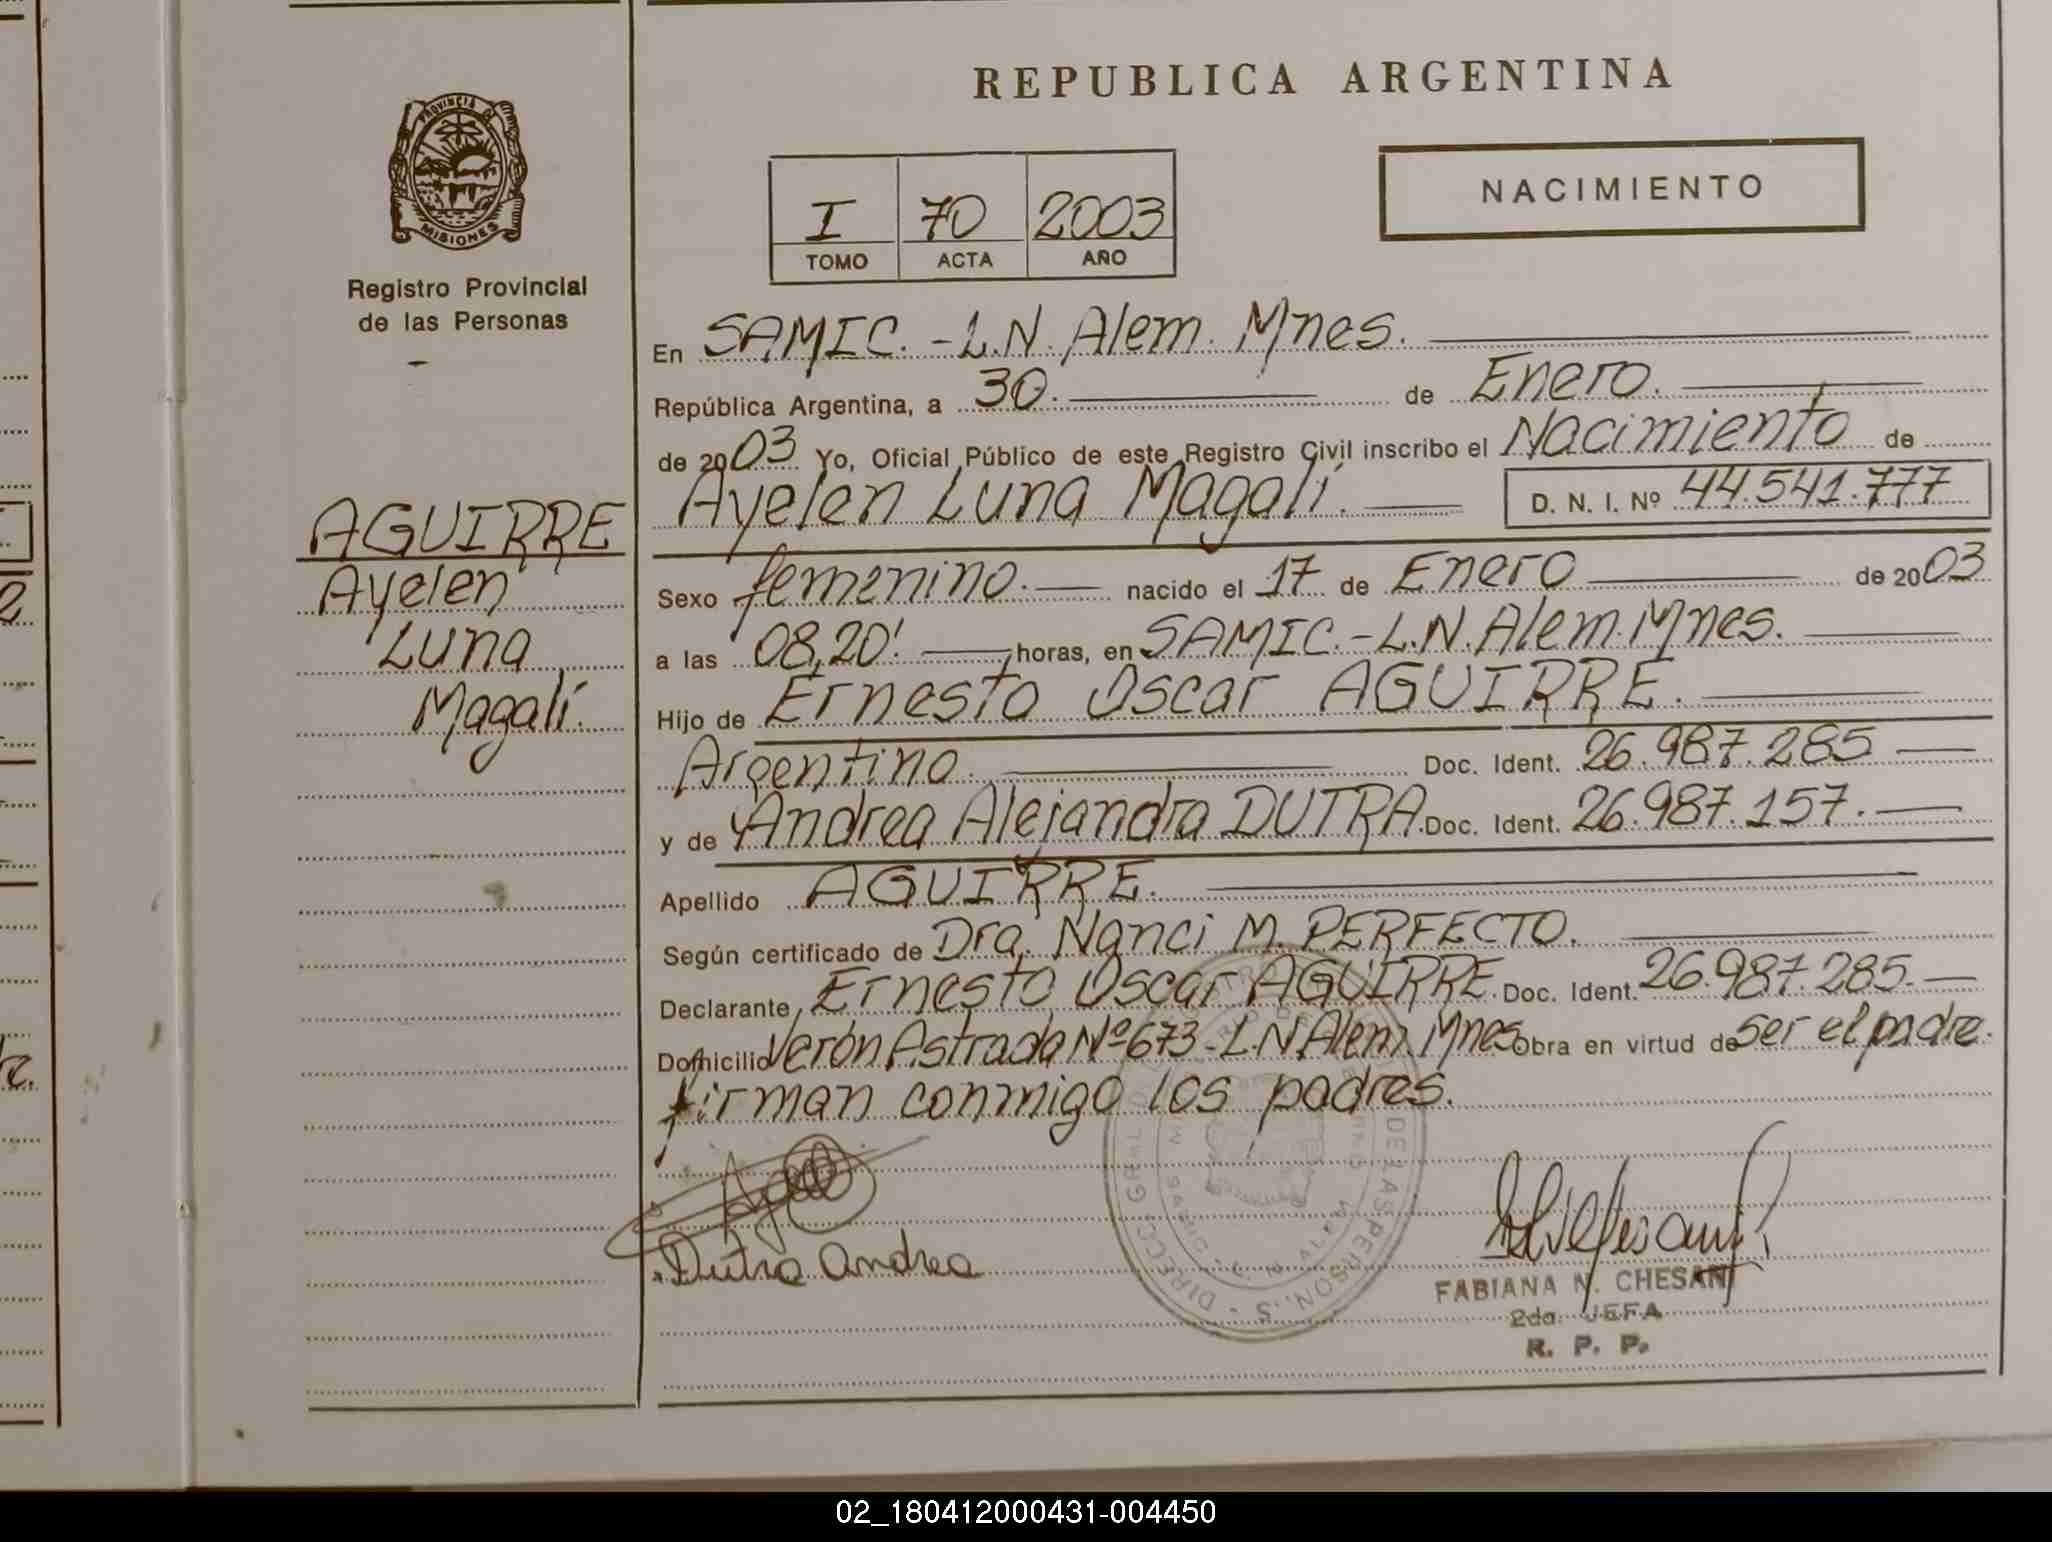 REPUBLICA ARGENTINA
PROVINCIA DE
MISIONES
Registro Provincial
de las Personas
NACIMIENTO
I 70 2003
TOMO ACTA AÑO
En SAMIC.-L.N.Alem. Mnes.
República Argentina, a 30. de Enero.
de 2003 Yo, Oficial Público de este Registro Civil inscribo el Nacimiento de
Ayelen Luna Magalí. D. N. I. Nº 44.541.777
AGUIRRE
Ayelen
Luna
Magalí.
Sexo femenino. nacido el 17 de Enero de 2003
a las 08,20'. horas, en SAMIC.-L.N.Alem.Mnes.
Hijo de Ernesto Oscar AGUIRRE.
Argentino. Doc. Ident. 26.987.285
y de Andrea Alejandra DUTRA. Doc. Ident. 26.987.157.
Apellido AGUIRRE.
Según certificado de Dra. Nanci M. PERFECTO.
Declarante Ernesto Oscar AGUIRRE. Doc. Ident. 26.987.285.
Domicilio Verón Astrada Nº 673-L.N.Alem. Mnes Obra en virtud de ser el padre.
firman conmigo los padres.
Dutra Andrea
FABIANA N. CHESANI
2da. JEFA
R. P. P.
02_180412000431-004450